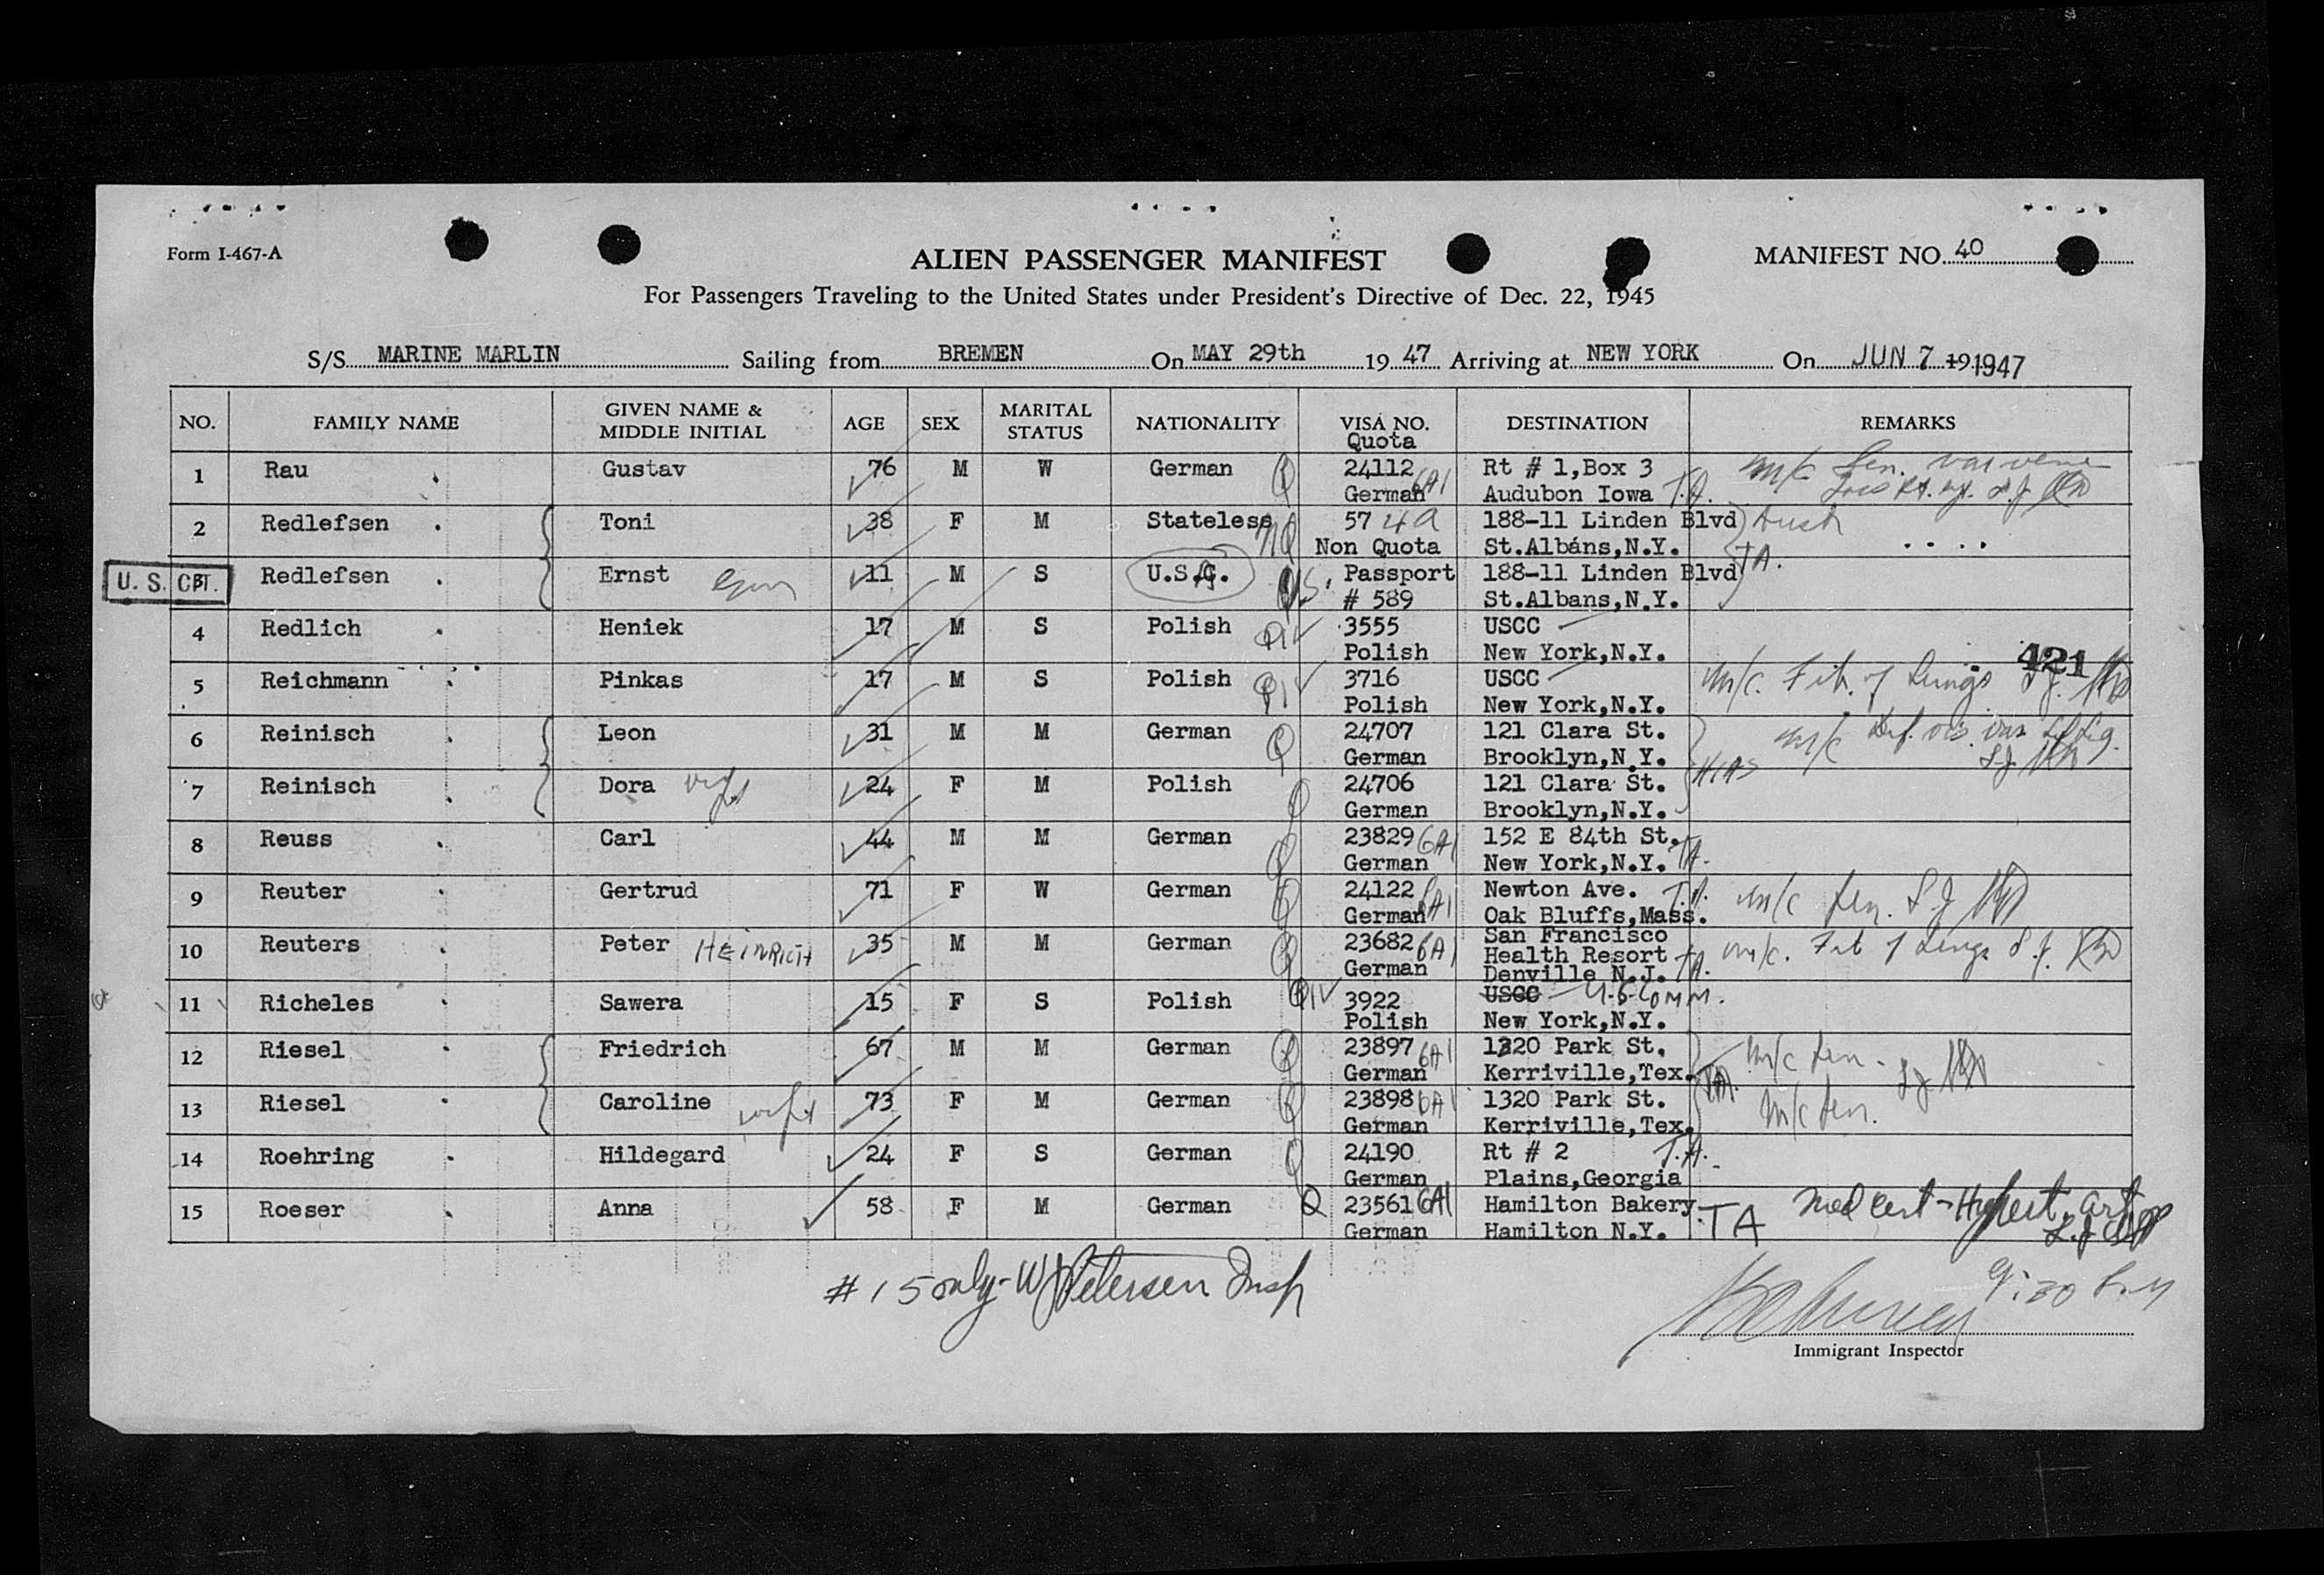 Form I-467-A
ALIEN PASSENGER MANIFEST
MANIFEST NO. 40
For Passengers Traveling to the United States under President's Directive of Dec. 22, 1945
S/S MARINE MARLIN Sailing from BREMEN On MAY 29th 19 47 Arriving at NEW YORK On JUN 7 19 1947
NO. FAMILY NAME GIVEN NAME & MIDDLE INITIAL AGE SEX MARITAL STATUS NATIONALITY VISA NO. Quota DESTINATION REMARKS
1 Rau Gustav 76 M W German Q 24112 6A1 Rt # 1,Box 3 m/c Sen.
German Audubon Iowa T.A.
2 Redlefsen Toni 38 F M Stateless NQ 57 4a 188-11 Linden Blvd
Non Quota St.Albans,N.Y. TA.
U.S. CIT. Redlefsen Ernst 11 M S U.S.A. Passport 188-11 Linden Blvd
# 589 St.Albans,N.Y.
4 Redlich Heniek 17 M S Polish QIV 3555 USCC
Polish New York,N.Y.
421
5 Reichmann Pinkas 17 M S Polish QIV 3716 USCC m/c. Fib. of Lungs
Polish New York,N.Y.
6 Reinisch Leon 31 M M German Q 24707 121 Clara St. m/c Def. vis.
German Brooklyn,N.Y. HIAS
7 Reinisch Dora wife 24 F M Polish Q 24706 121 Clara St.
German Brooklyn,N.Y.
8 Reuss Carl 44 M M German Q 23829 6A1 152 E 84th St.
German New York,N.Y. TA.
9 Reuter Gertrud 71 F W German Q 24122 6A1 Newton Ave. T.A. m/c Sen.
German Oak Bluffs,Mass.
10 Reuters Peter HEINRICH 35 M M German Q 23682 6A1 San Francisco m/c. Fib of Lungs
German Health Resort TA.
Denville N.J.
11 Richeles Sawera 15 F S Polish QIV 3922 USCC U.S.Comm.
Polish New York,N.Y.
12 Riesel Friedrich 67 M M German Q 23897 6A1 1320 Park St. m/c Sen.
German Kerriville,Tex. TA.
13 Riesel Caroline wife 73 F M German Q 23898 6A1 1320 Park St. m/c Sen.
German Kerriville,Tex.
14 Roehring Hildegard 24 F S German Q 24190 Rt # 2 T.A.
German Plains,Georgia
15 Roeser Anna 58 F M German Q 23561 6A1 Hamilton Bakery TA Med Cert-
German Hamilton N.Y.
# 15 only- W Petersen Insp
9:30
Immigrant Inspector